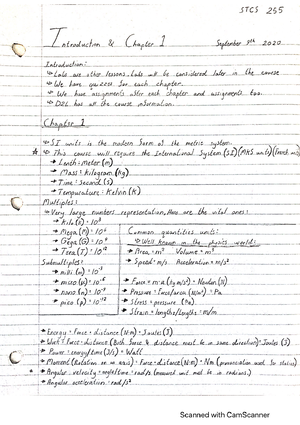 STCS 255
Introduction & Chapter 1
September 9th 2020
Introduction:
↳ Labs are other lessons, Labs will be considered later in the course
↳ We have quizzes for each chapter.
↳ We have assignments after each chapter and assignments too.
↳ D2L has all the course information.
Chapter 1
↳ SI units is the modern form of the metric system.
★ ↳ This course will require the International System (SI) (MKS units)
→ Lenth: Meter (m)
→ Mass: Kilogram (Kg)
→ Time: Second (s)
→ Tempurature: Kelvin (K)
Multiples:
→ Very large numbers representation, Here are the vital ones:
→ Kilo (K) = 10³
→ Mega (M) = 10⁶
→ Gega (G) = 10⁹
→ Tera (T) = 10¹²
Submultiples:
→ mili (m) = 10⁻³
→ micro (μ) = 10⁻⁶
→ nano (n) = 10⁻⁹
→ pico (p) = 10⁻¹²
Common quantities units:
↳ Well known in the physics world:
→ Area = m² Volume = m³
→ Speed = m/s Acceleration = m/s²
→ Force = m·a (kg m/s²) = Newton (N)
→ Pressure = Force/area (N/m²) = Pa
→ Stress = pressure (Pa)
→ Strain = lengths/lengths = m/m
→ Energy = Force × distance (N·m) = Joules (J)
→ Work = Force × distance (Both force & distance must be in same direction) = Joules (J)
→ Power = energy/time (J/s) = Watt
→ Moment (Rotation on an axis) = Force × distance (N·m) = Nm
★ → Angular velocity = angle/time = rad/s (measured unit must be in radians)
→ Angular acceleration = rad/s²
Scanned with CamScanner